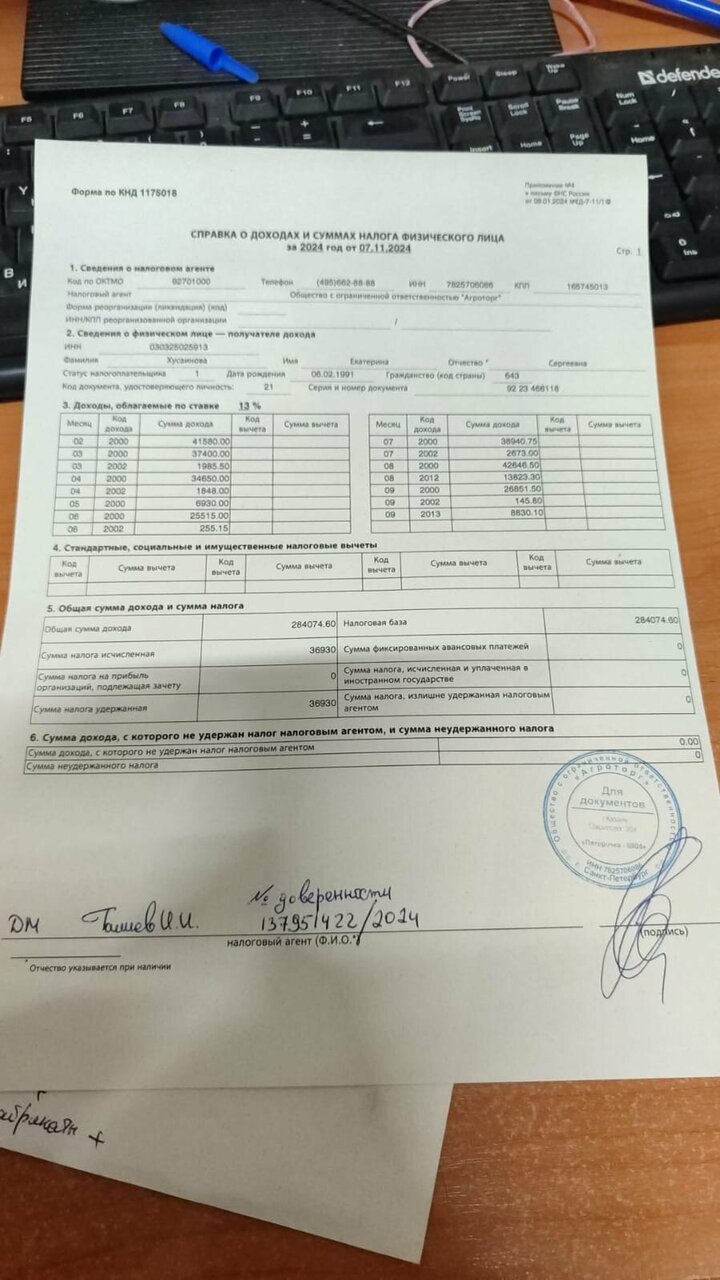 Форма по КНД 1175018
Приложение №4
к письму ФНС России
от 09.01.2024 №ЕД-7-11/1@
СПРАВКА О ДОХОДАХ И СУММАХ НАЛОГА ФИЗИЧЕСКОГО ЛИЦА
за 2024 год от 07.11.2024
Стр. 1
1. Сведения о налоговом агенте
Код по ОКТМО 92701000 Телефон (495)662-88-88 ИНН 7825706086 КПП 165745013
Налоговый агент Общество с ограниченной ответственностью "Агроторг"
Форма реорганизации (ликвидации) (код)
ИНН/КПП реорганизованной организации /
2. Сведения о физическом лице — получателе дохода
ИНН 030325025913
Фамилия Хусаинова Имя Екатерина Отчество * Сергеевна
Статус налогоплательщика 1 Дата рождения 06.02.1991 Гражданство (код страны) 643
Код документа, удостоверяющего личность: 21 Серия и номер документа 92 23 466118
3. Доходы, облагаемые по ставке 13 %
Месяц Код дохода Сумма дохода Код вычета Сумма вычета Месяц Код дохода Сумма дохода Код вычета Сумма вычета
02 2000 41580.00 07 2000 38940.75
03 2000 37400.00 07 2002 2673.00
03 2002 1985.50 08 2000 42646.50
04 2000 34650.00 08 2012 13623.30
04 2002 1848.00 09 2000 26851.50
05 2000 6930.00 09 2002 145.80
06 2000 25515.00 09 2013 8830.10
06 2002 255.15
4. Стандартные, социальные и имущественные налоговые вычеты
Код вычета Сумма вычета Код вычета Сумма вычета Код вычета Сумма вычета Код вычета Сумма вычета
5. Общая сумма дохода и сумма налога
Общая сумма дохода 284074.60 Налоговая база 284074.60
Сумма налога исчисленная 36930 Сумма фиксированных авансовых платежей 0
Сумма налога на прибыль организаций, подлежащая зачету 0 Сумма налога, исчисленная и уплаченная в иностранном государстве 0
Сумма налога удержанная 36930 Сумма налога, излишне удержанная налоговым агентом 0
6. Сумма дохода, с которого не удержан налог налоговым агентом, и сумма неудержанного налога
Сумма дохода, с которого не удержан налог налоговым агентом 0.00
Сумма неудержанного налога 0
Общество с ограниченной ответственностью
«Агроторг»
Для
документов
г.Казань
ИНН 7825706086
Санкт-Петербург
№ доверенности
ДМ И.И. 13795/422/2024
налоговый агент (Ф.И.О.*)
(подпись)
* Отчество указывается при наличии
defende
F5 F6 F7 F8 F9 F10 F11 F12 Power Sleep Wake Up
Print Screen SysRq Scroll Lock Pause Break Num Lock
Insert Home Page Up Home